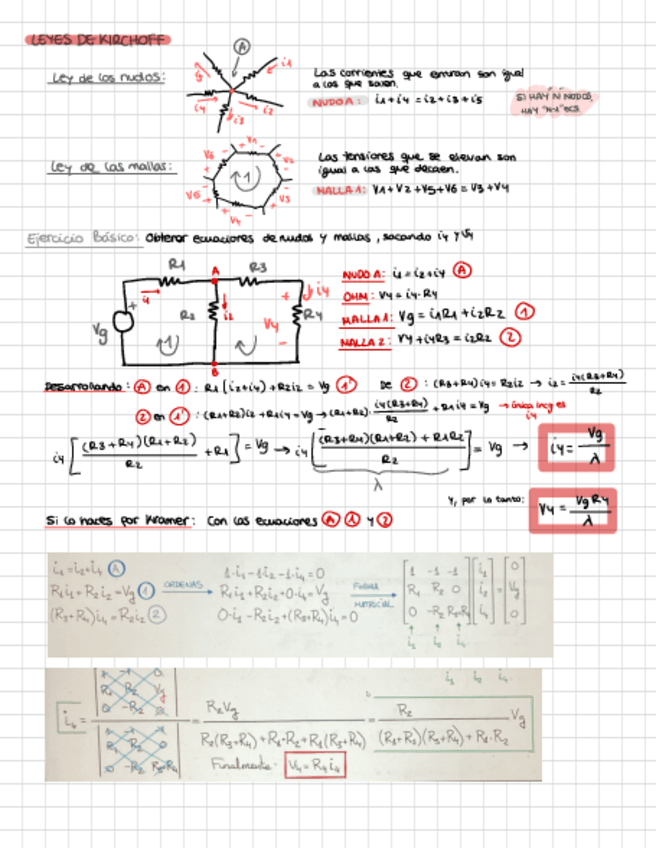 LEYES DE KIRCHOFF
Ley de los nudos:
A
i1
i2
i3
i4
Las corrientes que entran son igual
a las que salen.
NUDO A: i1+i4 = i2+i3+i5
SI HAY N NUDOS,
HAY "N-1" ECS
Ley de las mallas:
1
V1
V3
V4
V5
V6
Las tensiones que se elevan son
igual a las que decaen.
MALLA 1: V1+V2+V5+V6 = V3+V4
Ejercicio Básico: Obtener ecuaciones de nudos y mallas, sacando i4 y V4
R1
A
R3
i1
i2
i4
R2
R4
Vg
V4
1
2
B
NUDO A: i1 = i2+i4 A
OHM: V4 = i4·R4
MALLA 1: Vg = i1R1 + i2R2 1
MALLA 2: V4 + i4R3 = i2R2 2
Desarrollando: A en 1: R1(i2+i4) + R2i2 = Vg 1' De 2: (R3+R4)i4 = R2i2 → i2 = i4(R3+R4)/R2
2 en 1': (R1+R2)i2 + R1i4 = Vg → (R1+R2)· i4(R3+R4)/R2 + R1i4 = Vg → única incg es i4
i4 [ (R3+R4)(R1+R2)/R2 + R1 ] = Vg → i4 [ (R3+R4)(R1+R2) + R1R2 / R2 ] = Vg → i4 = Vg/λ
λ
Y, por lo tanto: V4 = VgR4/λ
Si lo haces por Kramer: Con las ecuaciones A 1 y 2
i1 = i2+i4 A
R1i1 + R2i2 = Vg 1
(R3+R4)i4 = R2i2 2
ORDENAS
1·i1 - 1·i2 - 1·i4 = 0
R1i1 + R2i2 + 0·i4 = Vg
0·i1 - R2i2 + (R3+R4)i4 = 0
FORMA
MATRICIAL
1 -1 -1 i1 0
R1 R2 0 i2 = Vg
0 -R2 R3+R4 i4 0
i1 i2 i4
i1 i2 i4
i4 = = R2Vg / R2(R3+R4) + R1·R2 + R1(R3+R4) = R2 / (R1+R2)(R3+R4) + R1·R2 Vg
Finalmente: V4 = R4 i4